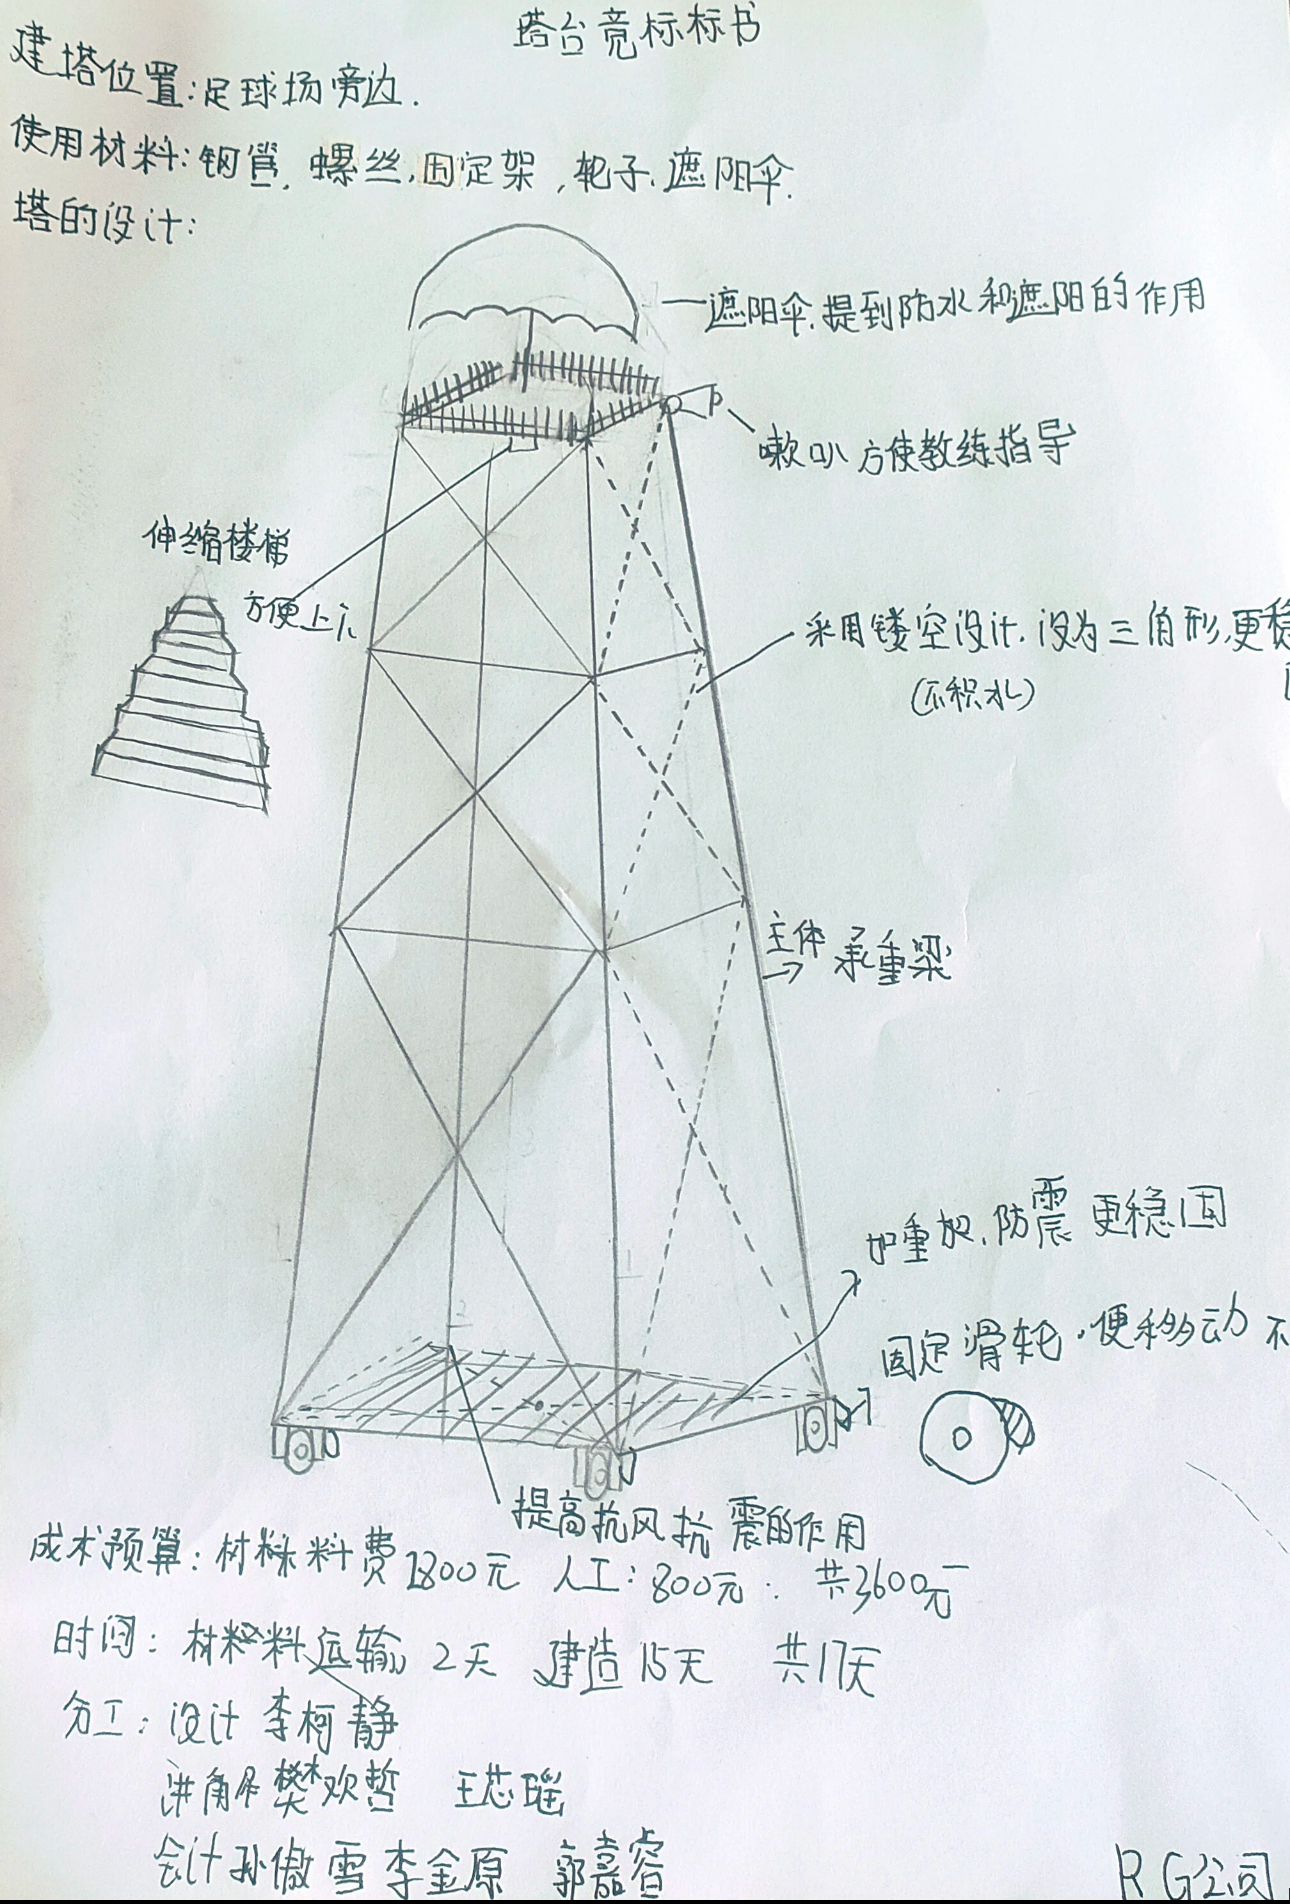 塔台竞标标书
建塔位置:足球场旁边.
使用材料:钢管,螺丝,固定架,轮子,遮阳伞.
塔的设计:
遮阳伞,提到防水和遮阳的作用
喇叭 方使教练指导
伸缩楼梯
方便上下
采用镂空设计,设为三角形,更稳
(不积水)
主体承重梁
加重架,防震 更稳固
固定滑轮,便移动 不
提高抗风抗震的作用
成本预算:材料费2800元 人工:800元 共3600元
时间:材料运输2天 建造15天 共17天
分工:设计 李柯静
讲解 樊欢哲 王芯瑶
会计 孙傲雪 李金原 郭嘉睿
RG公司